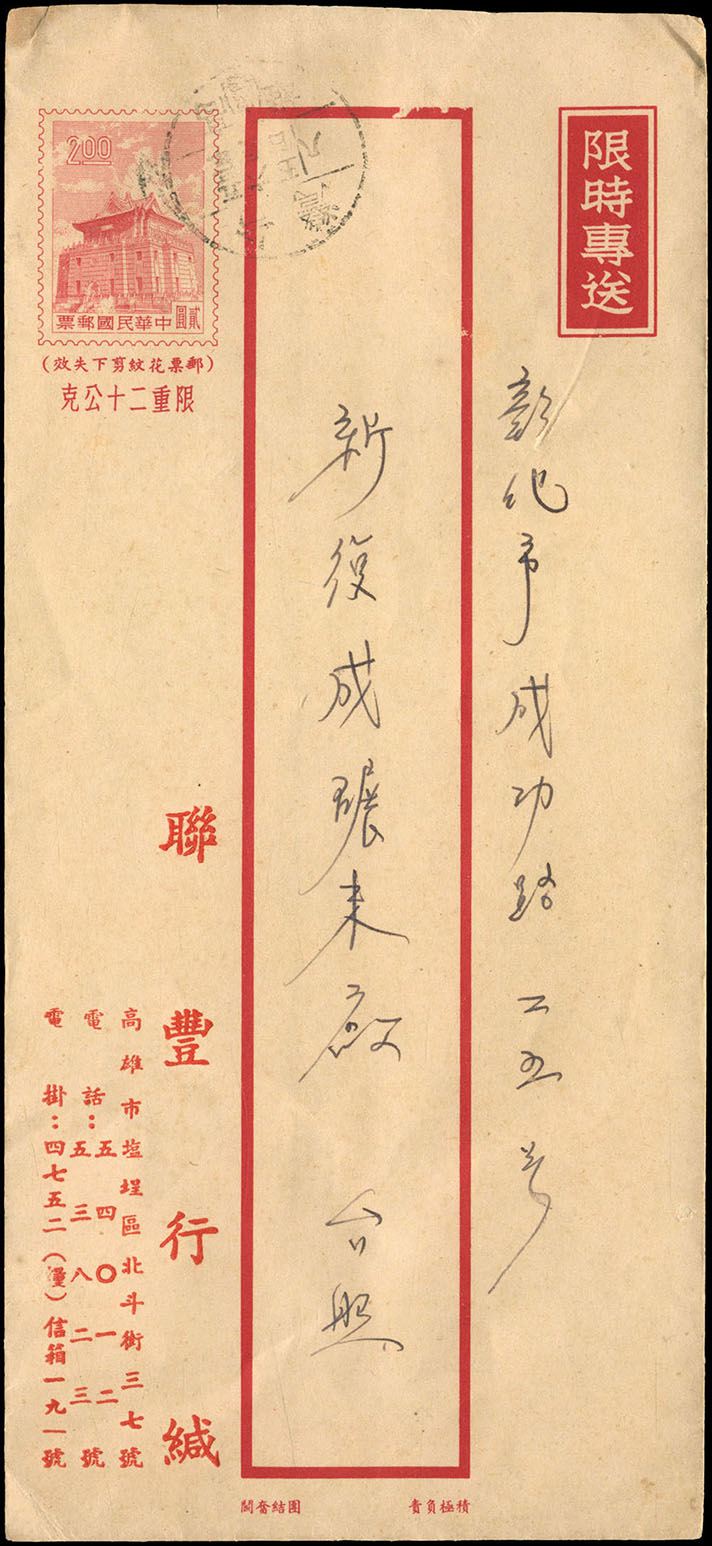 限時專送
彰化市成功路二五号
新復成碾米廠 台照
2.00
票郵國民華中
貳圓
(效失下剪紋花票郵)
克公十二重限
聯豐行緘
高雄市塩埕區北斗街三七號
電話：五四〇一二
五三八二三號
電掛：四七五二(糧)信箱一九一號
鬭奮結團
責負極積